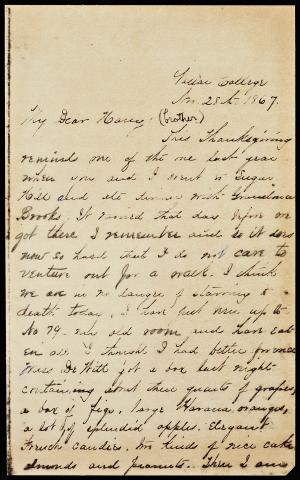 Vassar College
Nov. 28th 1867.
My Dear Harry. (brother)
This Thanksgiving
reminds me of the one last year
when you and I went to Sugar
Hill and ate dinner with Grandma
Brooks. It rained that day before we
got there I remember and so it does
now so hard that I do not care to
venture out for a walk. I think
we are in no danger of starving to
death today. I have just run up to
No 79 - my old room and have eat-
en all I thought I had better for once
Miss De Witt got a box last night
containing about three quarts of grapes,
a box of figs, large Havana oranges,
a lot of splendid apples, elegant
French candies, two kinds of nice cake
almonds and peanuts. There I am